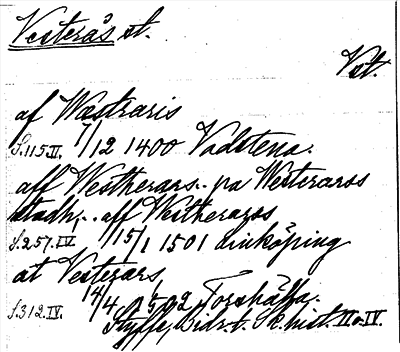 Vesterås st.
Vst.
af Wæstraris
S.115.II. 7/12 1400 Vadstena.
aff Westherars.. pa Westeraros
stadh,.. aff Westheraross
S.257.IV. 15/1 1501 Linköping
at Vesterars,
S.312.IV. 14/4 1502 Torshälla.
Styffe, Bidr. t. Sk. hist. II o. IV.